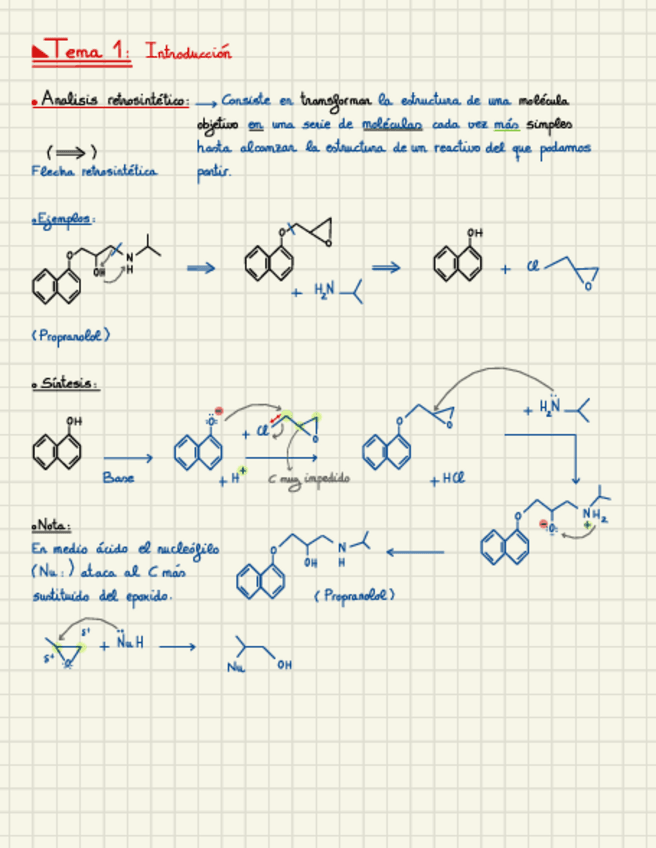 Tema 1: Introducción
• Analisis retrosintético: → Consiste en transformar la estructura de una molécula
objetivo en una serie de moléculas cada vez más simples
(⟹) hasta alcanzar la estructura de un reactivo del que podamos
Flecha retrosintética partir.
• Ejemplos:
O OH N H ⟹ O O + H₂N ⟹ OH + Cl O
(Propranolol)
• Síntesis:
OH Base O ⊖ + Cl O + H⁺ C muy impedido O O + HCl + H₂N
O ⊖ O: ⊕ NH₂
• Nota:
En medio ácido el nucleófilo
(Nu:) ataca al C más
sustituído del epoxido.
O OH N H
(Propranolol)
δ⁺ δ⁺ O + NuH → Nu OH